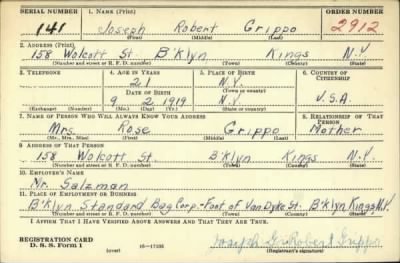 SERIAL NUMBER 1. NAME (Print) ORDER NUMBER
141 Joseph Robert Grippo 2912
(First) (Middle) (Last)
2. ADDRESS (Print)
158 Wolcott St. B'klyn Kings N.Y.
(Number and street or R. F. D. number) (Town) (County) (State)
3. TELEPHONE 4. AGE IN YEARS 5. PLACE OF BIRTH 6. COUNTRY OF CITIZENSHIP
21 N.Y.
DATE OF BIRTH (Town or county)
9 2 1919 N.Y. U.S.A.
(Exchange) (Number) (Mo.) (Day) (Yr.) (State or country)
7. NAME OF PERSON WHO WILL ALWAYS KNOW YOUR ADDRESS 8. RELATIONSHIP OF THAT PERSON
Mrs. Rose Grippo Mother
(Mr., Mrs., Miss) (First) (Middle) (Last)
9. ADDRESS OF THAT PERSON
158 Wolcott St. B'klyn Kings N.Y.
(Number and street or R. F. D. number) (Town) (County) (State)
10. EMPLOYER'S NAME
Mr. Salzman
11. PLACE OF EMPLOYMENT OR BUSINESS
B'klyn Standard Bag Corp.-Foot of Van Dyke St. B'klyn Kings N.Y.
(Number and street or R. F. D. number) (Town) (County) (State)
I AFFIRM THAT I HAVE VERIFIED ABOVE ANSWERS AND THAT THEY ARE TRUE.
REGISTRATION CARD
D. S. S. FORM 1 (over) Joseph Robert Grippo
(Registrant's signature)